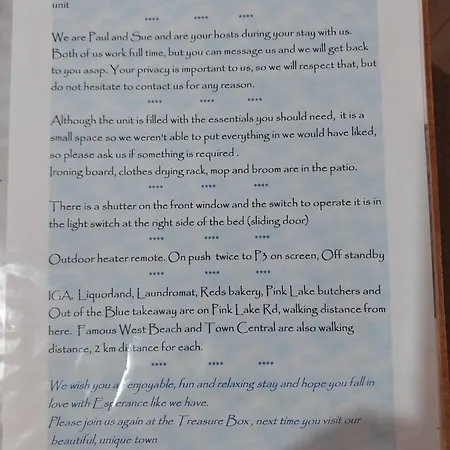 unit
**** **** ****
We are Paul and Sue and are your hosts during your stay with us.
Both of us work full time, but you can message us and we will get back
to you asap. Your privacy is important to us, so we will respect that, but
do not hesitate to contact us for any reason.
**** **** ****
Although the unit is filled with the essentials you should need, it is a
small space so we weren't able to put everything in we would have liked,
so please ask us if something is required .
Ironing board, clothes drying rack, mop and broom are in the patio.
**** **** ****
There is a shutter on the front window and the switch to operate it is in
the light switch at the right side of the bed (sliding door)
**** **** ****
Outdoor heater remote. On push twice to P3 on screen, Off standby
**** **** ****
IGA, Liquorland, Laundromat, Reds bakery, Pink Lake butchers and
Out of the Blue takeaway are on Pink Lake Rd, walking distance from
here. Famous West Beach and Town Central are also walking
distance, 2 km distance for each.
**** **** ****
We wish you an enjoyable, fun and relaxing stay and hope you fall in
love with Esperance like we have.
Please join us again at the Treasure Box , next time you visit our
beautiful, unique town